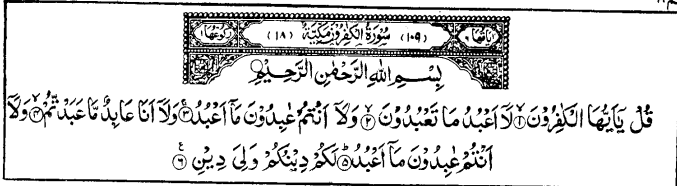 اٰیاتھا ۶ (۱۰۹) سُوْرَۃُ الْکٰفِرُوْنَ مَکِّیَّۃٌ (۱۸) رکوعھا ۱
بِسْمِ اللّٰهِ الرَّحْمٰنِ الرَّحِیْمِ
قُلْ یٰۤاَیُّهَا الْكٰفِرُوْنَ ۱ لَاۤ اَعْبُدُ مَا تَعْبُدُوْنَ ۲ وَلَاۤ اَنْتُمْ عٰبِدُوْنَ مَاۤ اَعْبُدُ ۳ وَلَاۤ اَنَا عَابِدٌ مَّا عَبَدْتُّمْ ۴ وَلَاۤ
اَنْتُمْ عٰبِدُوْنَ مَاۤ اَعْبُدُ ۵ لَكُمْ دِیْنُكُمْ وَلِیَ دِیْنِ ۶